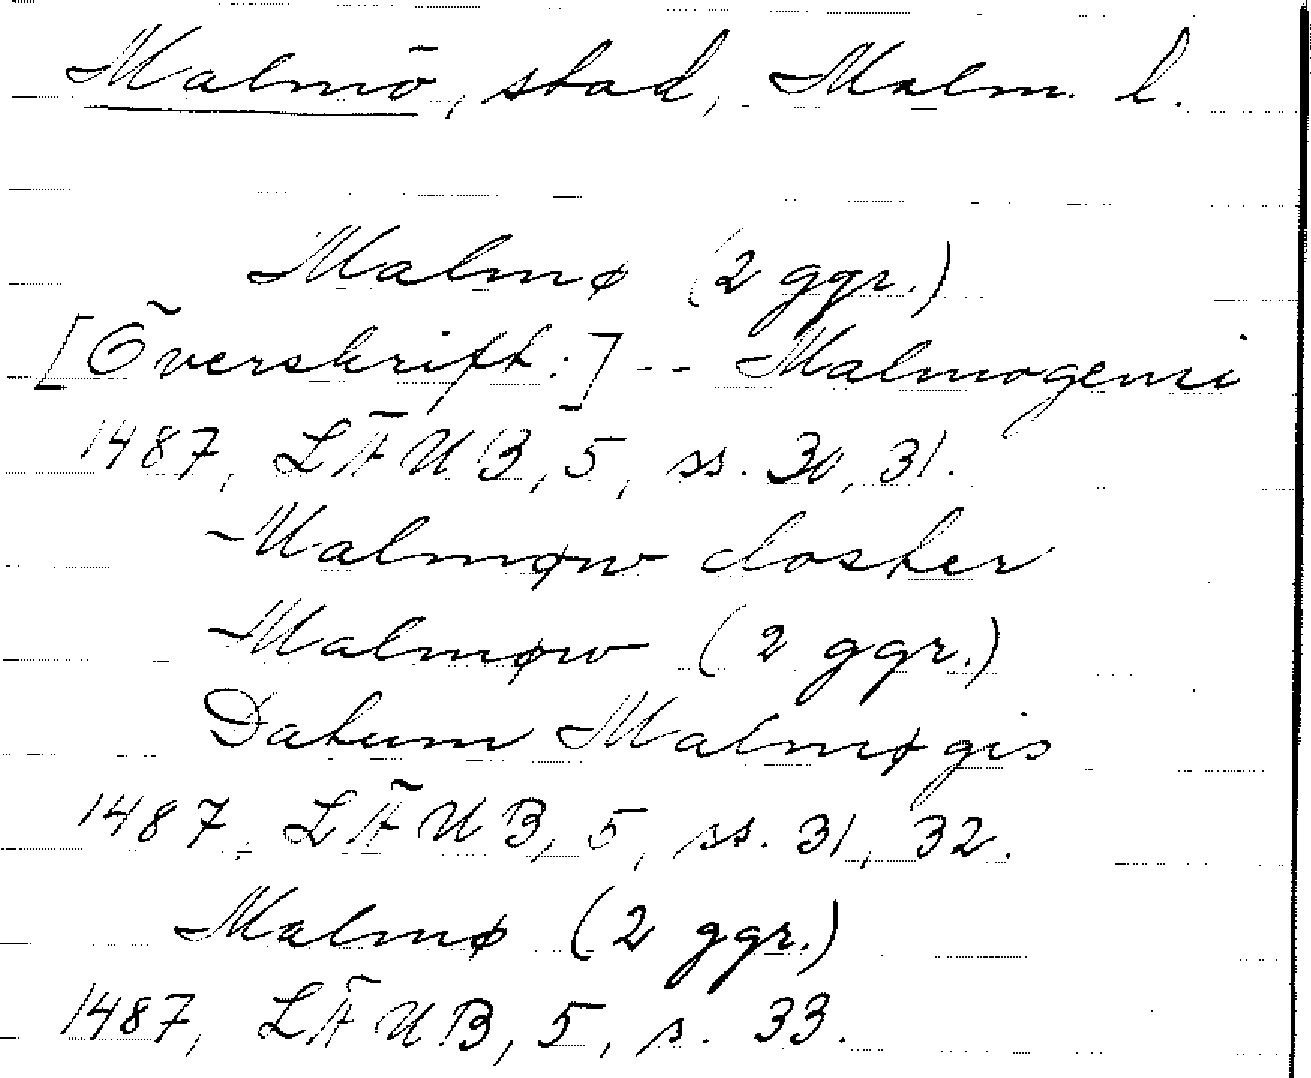 Malmö, stad, Malm. l.
Malmø (2 ggr.)
[Överskrift:] -- Malmogensi
1487, LÄUB, 5, ss. 30, 31.
Malmøw closter
Malmøw (2 ggr.)
Datum Malmøgis
1487, LÄUB, 5, ss. 31, 32.
Malmø (2 ggr.)
1487, LÄUB, 5, s. 33.